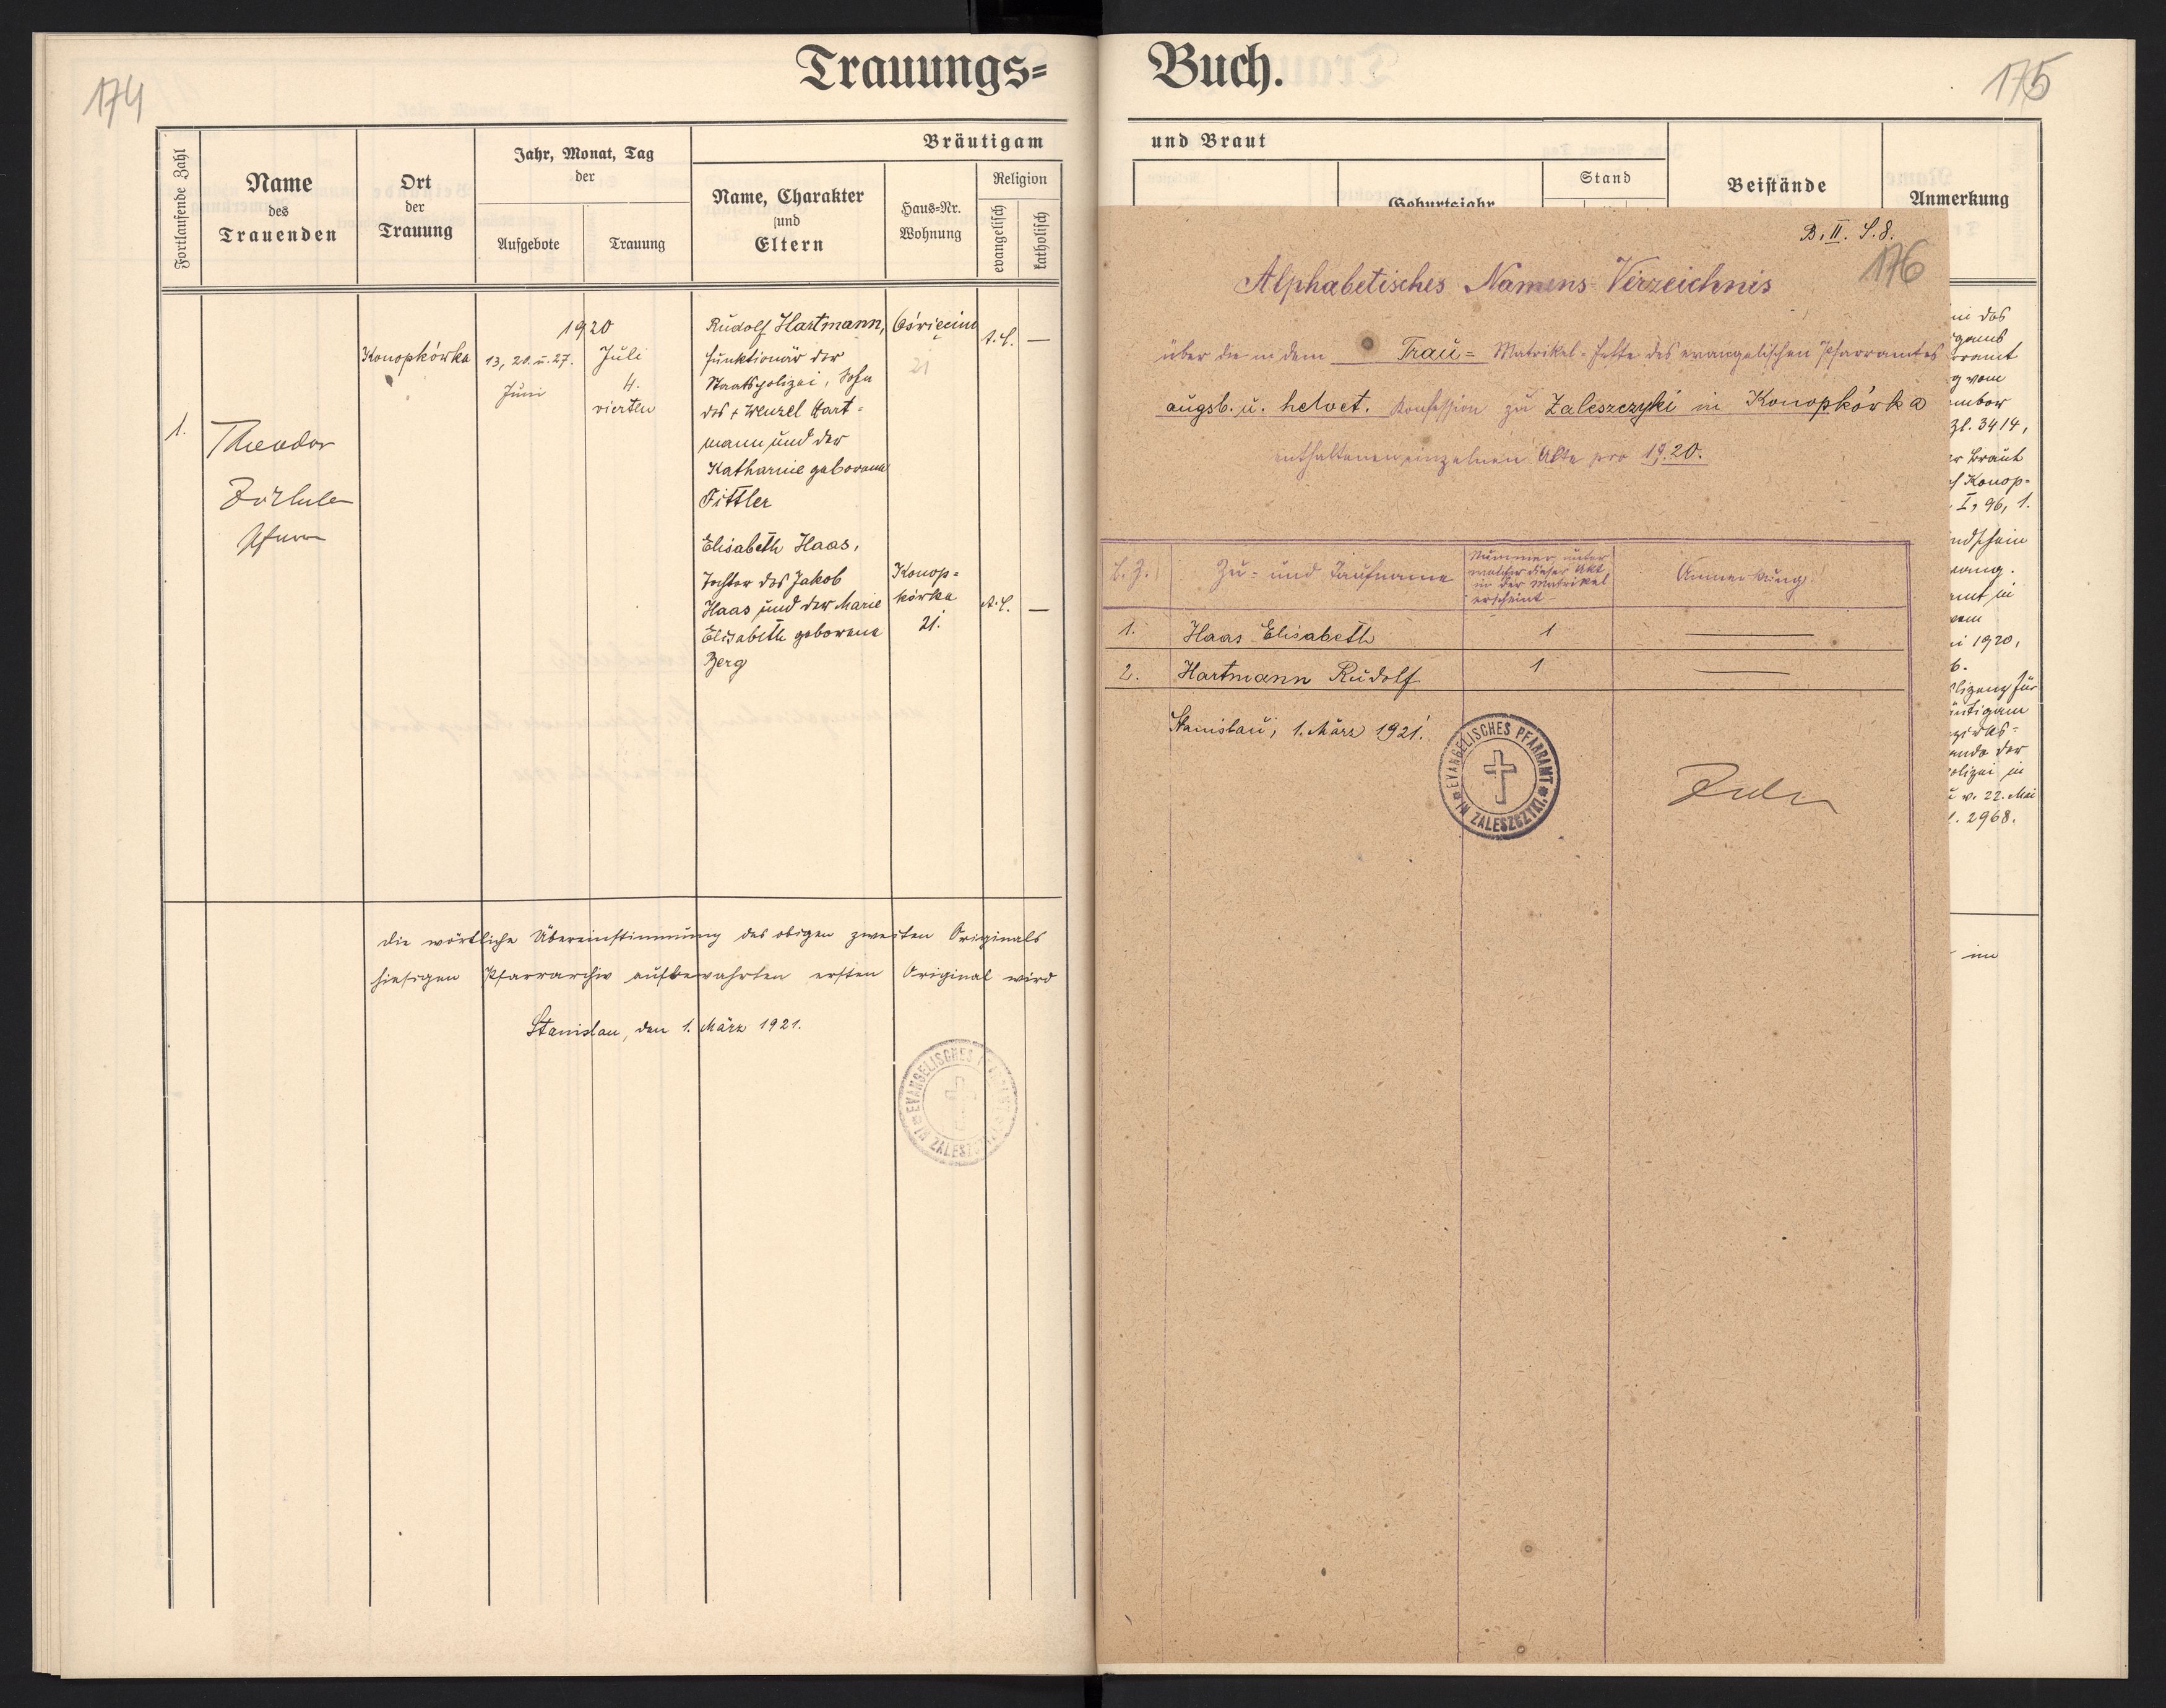 174
Trauungs=
Fortlaufende Zahl
Name
des
Trauenden
Ort
der
Trauung
Jahr, Monat, Tag
der
Aufgebote
Trauung
Bräutigam
Name, Charakter
und
Eltern
Haus=Nr.
Wohnung
Religion
evangelisch
katholisch
1.
Theodor
Zöckler
Konopkówka
1920
13., 20. u. 27.
Juni
Juli
4.
vierten
Rudolf Hartmann,
Funktionär der
Staatspolizei, Sohn
des + Wenzel Hart=
mann und der
Katharine geborene
Tittler
Oświęcim
21
Elisabeth Haas,
Tochter des Jakob
Haas und der Marie
Elisabeth geborene
Berg
Konop=
kówka
21.
Die wörtliche Übereinstimmung des obigen zweiten Originals
hiesigen Pfarrarchiv aufbewahrten ersten Original wird
Stanislau, den 1. März 1921.
EVANGELISCHES PFARRAMT
IN ZALESZCZYKI
Buch.
175
und Braut
Geburtsjahr
Stand
Beistände
Anmerkung
B. II. S. 8.
176
Alphabetisches Namens-Verzeichnis
über die in dem Trau= Matrikel-Hefte des evangelischen Pfarramtes
augsb. u. helvet. Konfession zu Zaleszczyki in Konopkówka
enthaltenen einzelnen Akte pro 1920.
L. Z.
Zu- und Taufname
Nummer unter
welcher dieser Akt
in der Matrikel
erscheint
Anmerkung
1. Haas Elisabeth 1
2. Hartmann Rudolf 1
Stanislau, 1. März 1921.
EVANGELISCHES PFARRAMT
IN ZALESZCZYKI.
das
vom
Zl. 3414,
Braut
Konop=
I, 96, 1.
in
1920,
6.
für
der
in
v. 22. Mai
2968.
im